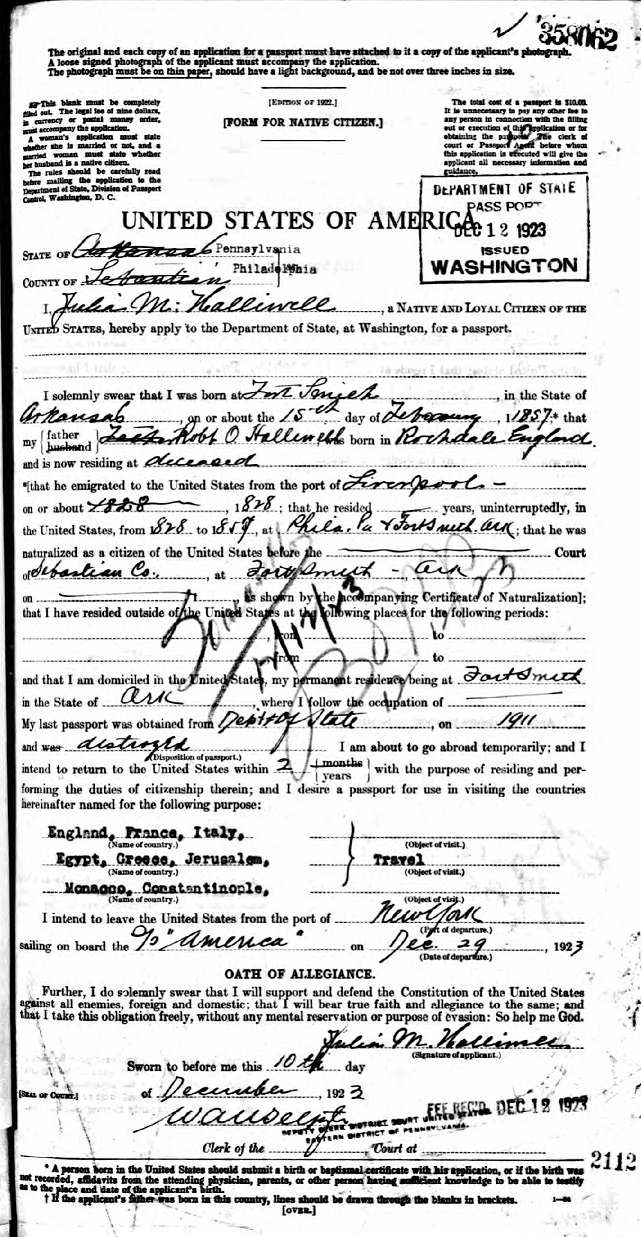 358062
The original and each copy of an application for a passport must have attached to it a copy of the applicant's photograph.
A loose signed photograph of the applicant must accompany the application.
The photograph must be on thin paper, should have a light background, and be not over three inches in size.
This blank must be completely
filled out. The legal fee of nine dollars,
in currency or postal money order,
must accompany the application.
A woman's application must state
whether she is married or not, and a
married woman must state whether
her husband is a native citizen.
The rules should be carefully read
before mailing the application to the
Department of State, Division of Passport
Control, Washington, D. C.
[EDITION OF 1922.]
[FORM FOR NATIVE CITIZEN.]
The total cost of a passport is $10.00.
It is unnecessary to pay any other fee to
any person in connection with the filling
out or execution of this application or for
obtaining the passport. The clerk of
court or Passport Agent before whom
this application is executed will give the
applicant all necessary information and
guidance.
DEPARTMENT OF STATE
PASSPORT
DEC 12 1923
ISSUED
WASHINGTON
UNITED STATES OF AMERICA
STATE OF Arkansas Pennsylvania
COUNTY OF Sebastian Philadelphia
I, Julia M. Halliwell, a NATIVE AND LOYAL CITIZEN OF THE
UNITED STATES, hereby apply to the Department of State, at Washington, for a passport.
I solemnly swear that I was born at Fort Smith, in the State of
Arkansas, on or about the 15th day of February, 1857,* that
my {father husband} Robt O. Halliwell was born in Rochdale England
and is now residing at deceased
*[that he emigrated to the United States from the port of Liverpool -
on or about 1828, 1828; that he resided years, uninterruptedly, in
the United States, from 1828 to 1859, at Phila. Pa & Fort Smith Ark; that he was
naturalized as a citizen of the United States before the Court
of Sebastian Co., at Fort Smith - Ark
on , as shown by the accompanying Certificate of Naturalization];
that I have resided outside of the United States at the following places for the following periods:
, from to
, from to
and that I am domiciled in the United States, my permanent residence being at Fort Smith
in the State of Ark, where I follow the occupation of
My last passport was obtained from Dept of State, on 1911
and was destroyed I am about to go abroad temporarily; and I
(Disposition of passport.)
intend to return to the United States within 2 {months years} with the purpose of residing and per-
forming the duties of citizenship therein; and I desire a passport for use in visiting the countries
hereinafter named for the following purpose:
England, France, Italy,
(Name of country.) (Object of visit.)
Egypt, Greece, Jerusalem, Travel
(Name of country.) (Object of visit.)
Monaco, Constantinople,
(Name of country.) (Object of visit.)
I intend to leave the United States from the port of New York
(Port of departure.)
sailing on board the S/S "America" on Dec. 29, 1923
(Date of departure.)
OATH OF ALLEGIANCE.
Further, I do solemnly swear that I will support and defend the Constitution of the United States
against all enemies, foreign and domestic; that I will bear true faith and allegiance to the same; and
that I take this obligation freely, without any mental reservation or purpose of evasion: So help me God.
Julia M. Halliwell
(Signature of applicant.)
Sworn to before me this 10th day
[SEAL OF COURT.] of December, 1923
FEE REC'D. DEC 12 1923
DEPUTY CLERK DISTRICT COURT UNITED STATES
EASTERN DISTRICT OF PENNSYLVANIA.
Clerk of the Court at
2112
* A person born in the United States should submit a birth or baptismal certificate with his application, or if the birth was
not recorded, affidavits from the attending physician, parents, or other person having sufficient knowledge to be able to testify
as to the place and date of the applicant's birth.
† If the applicant's father was born in this country, lines should be drawn through the blanks in brackets.
[OVER.]